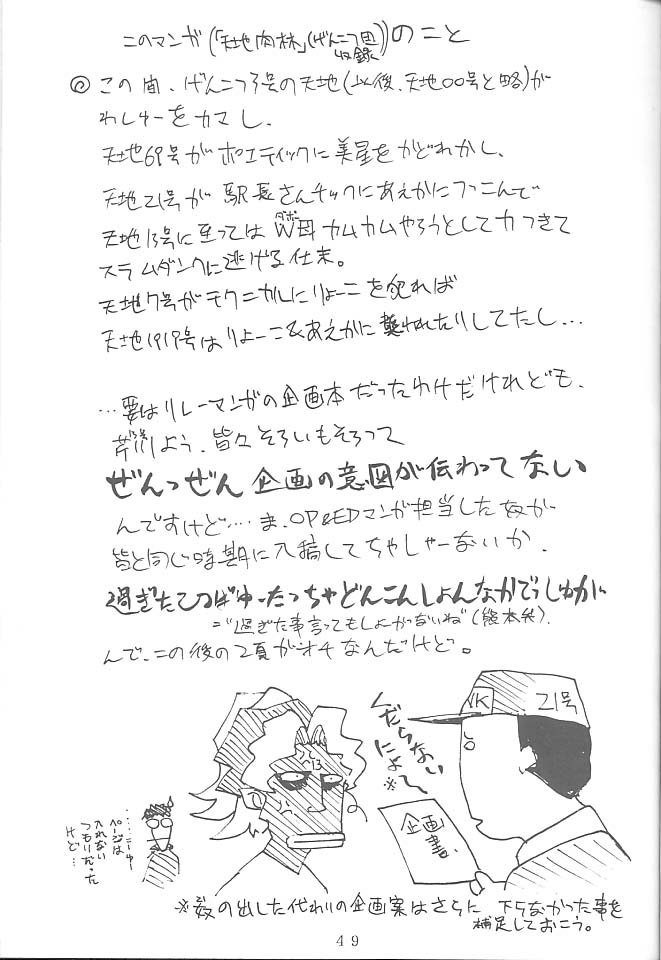 このマンガ(「天地肉林」(げんこつ団収録))のこと
◎ この間、げんこつ3号の天地(以後、天地00号と略)が
わしゅーをカマし、
天地69号がポエティックに美星をかどわかし、
天地21号が 駅長さんチックにあえかにつっこんで
天地13号に至ってはW母カムカムやろうとして力つきて
スラムダンクに逃げる仕末。
天地7号がテクニカルにりょーこを犯れば
天地1919号はりょーこ&あえかに襲われたりしてたし…
…要はリレーマンガの企画本だったわけだけれども、
よう、皆々そろいもそろって
ぜんっぜん 企画の意図が伝わってない
んですけど…ま、OP&EDマンガ担当した奴が
皆と同じ時期に入稿してちゃしゃーないか、
過ぎたてつばゆーたっちゃどんこんしょんなかでっしゅかに
="過ぎた事言ってもしょーがないね"(熊本弁)、
んで、この後の2頁がオチなんだけど。
13
くだらない
によって
※
企画書、
VK
21号
……ニーゆー
ページは
入れない
つもりだった
けど…
※奴の出した代わりの企画案はさらに 下らなかった事を
補足しておこう。
49